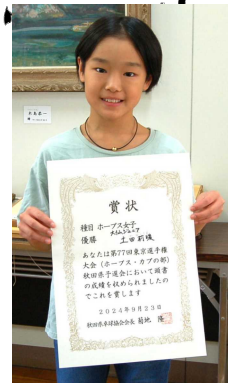 賞状
種目 ホープス女子
優勝
土田 莉
あなたは第77回東京選手権
大会（ホープス・カブの部）
秋田県予選会において頭書
の成績を収められましたの
でこれを賞します
2024年9月23日
秋田県卓球協会会長 菊地 隆